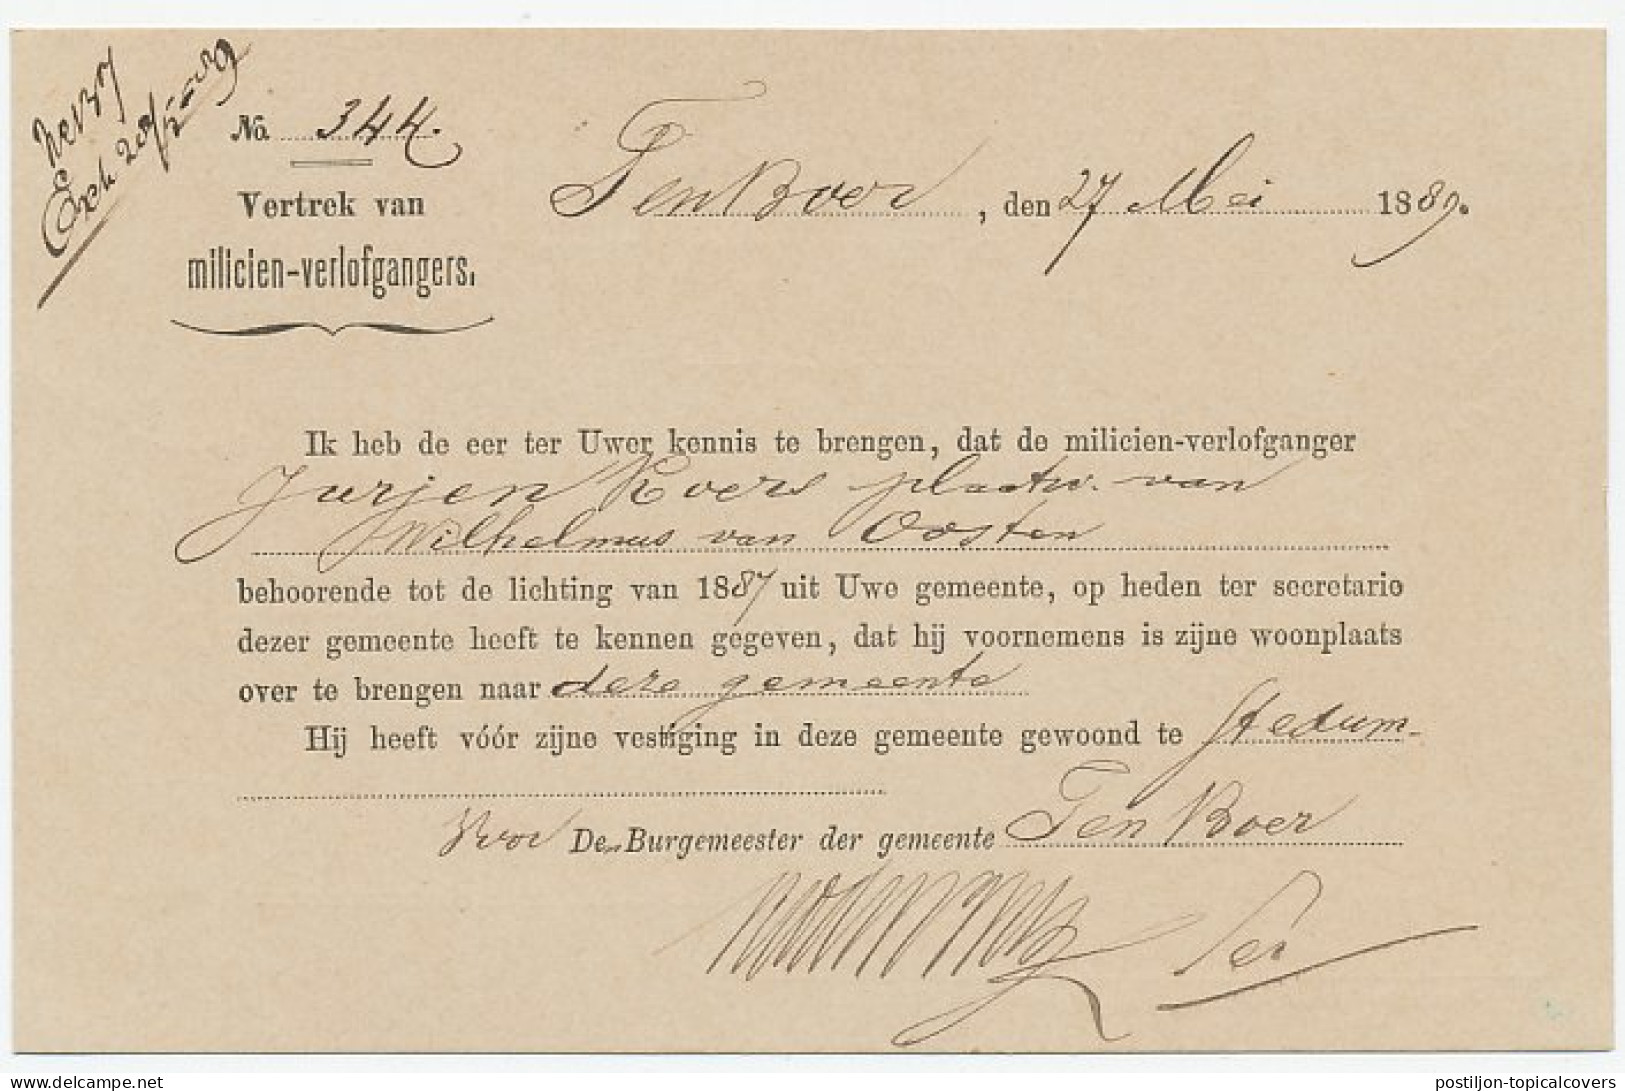 No 344.
Vertrek van
milicien-verlofgangers.
Ten Boer, den 27 Mei 1889.
Ik heb de eer ter Uwer kennis te brengen, dat de milicien-verlofganger
Jurjen Koers plaatsv. van
Wilhelmus van Oosten
behoorende tot de lichting van 1887 uit Uwe gemeente, op heden ter secretarie
dezer gemeente heeft te kennen gegeven, dat hij voornemens is zijne woonplaats
over te brengen naar deze gemeente
Hij heeft vóór zijne vestiging in deze gemeente gewoond te Stedum.
Voor Den Burgemeester der gemeente Ten Boer
Sec
delcampe.net
postiljon-topicalcovers